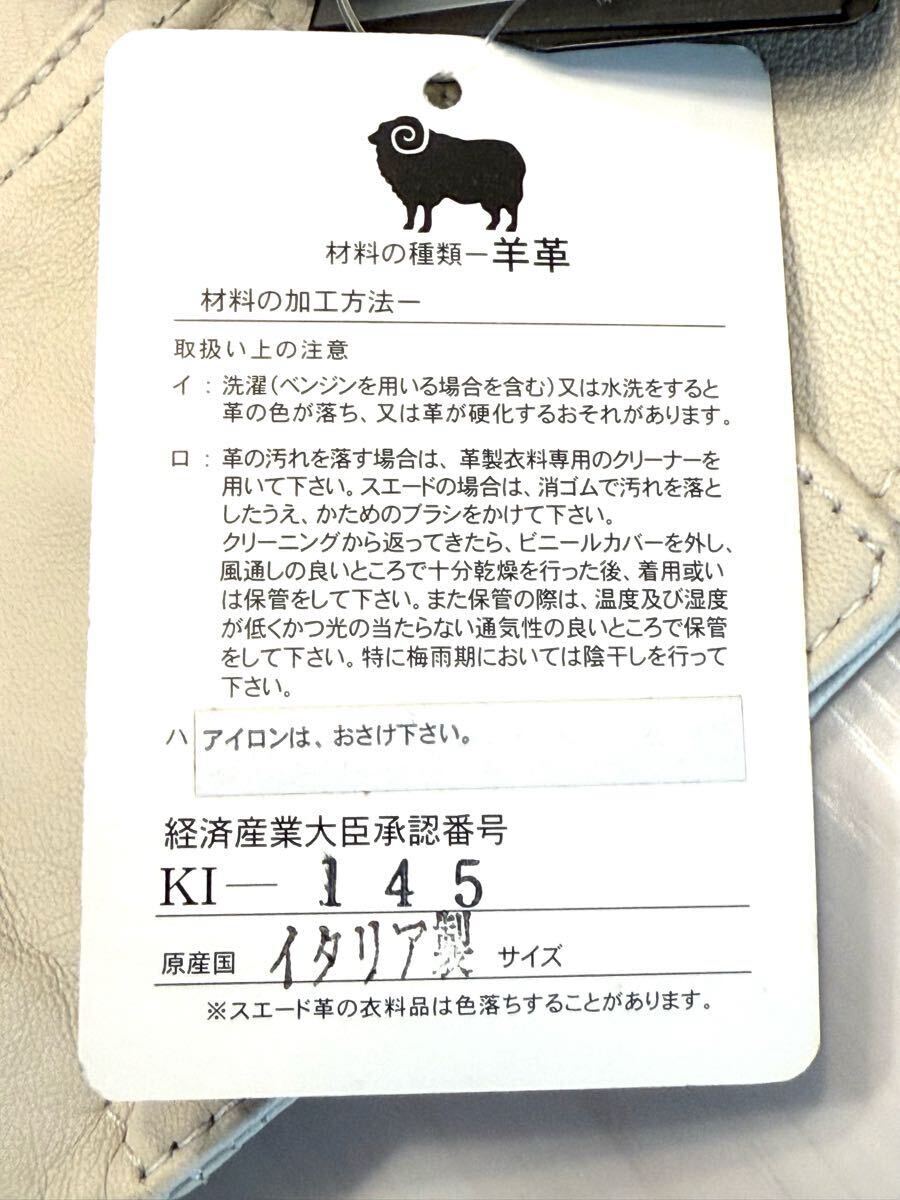 材料の種類ー羊革
材料の加工方法ー
取扱い上の注意
イ：洗濯（ベンジンを用いる場合を含む）又は水洗をすると
革の色が落ち、又は革が硬化するおそれがあります。
ロ：革の汚れを落す場合は、革製衣料専用のクリーナーを
用いて下さい。スエードの場合は、消ゴムで汚れを落と
したうえ、かためのブラシをかけて下さい。
クリーニングから返ってきたら、ビニールカバーを外し、
風通しの良いところで十分乾燥を行った後、着用或い
は保管をして下さい。また保管の際は、温度及び湿度
が低くかつ光の当たらない通気性の良いところで保管
をして下さい。特に梅雨期においては陰干しを行って
下さい。
ハ アイロンは、おさけ下さい。
経済産業大臣承認番号
KI— 145
原産国 イタリア製 サイズ
※スエード革の衣料品は色落ちすることがあります。